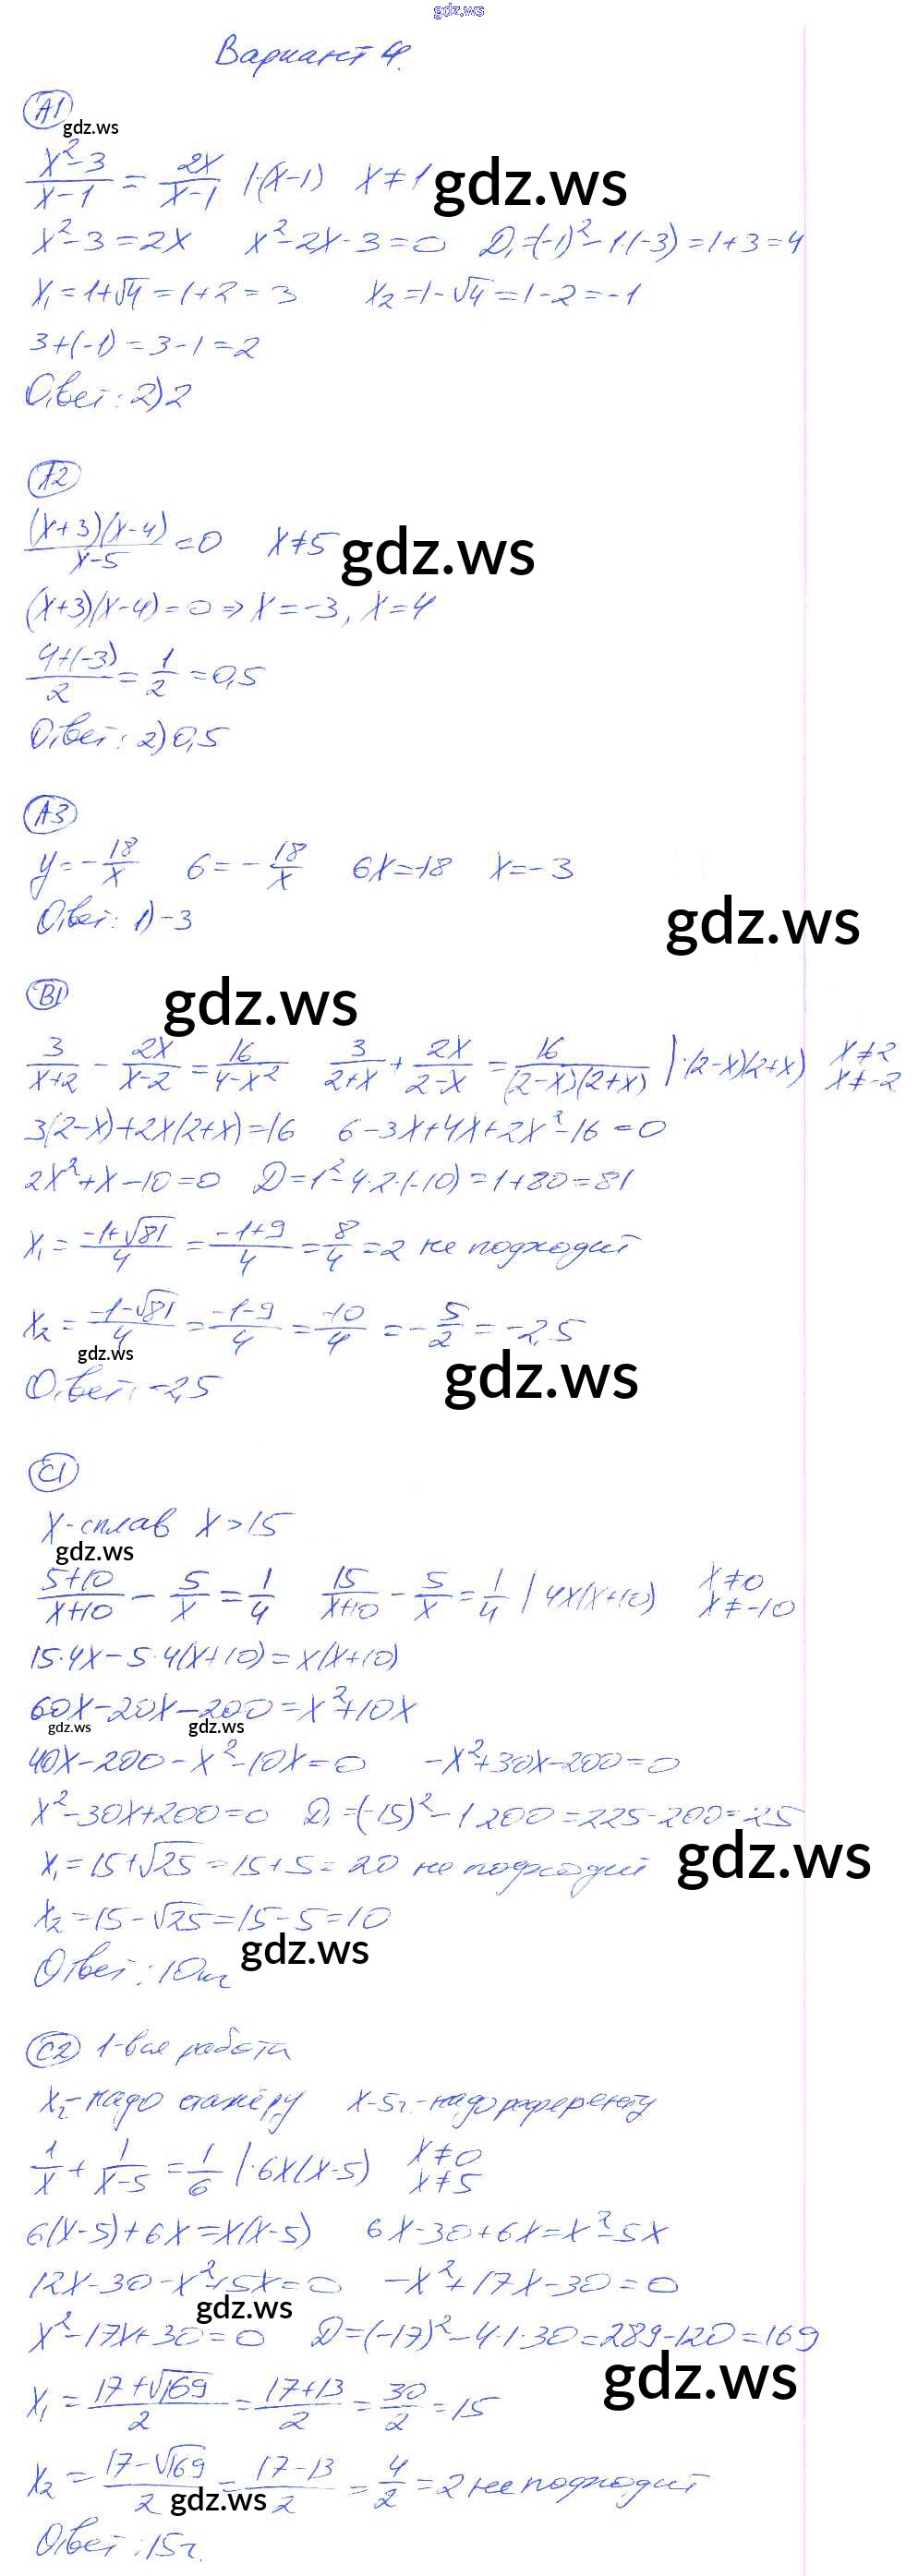 gdz.ws
Вариант 4.
A1
gdz.ws
(x²-3)/(x-1) = 2x/(x-1) |·(x-1) x≠1 gdz.ws
x²-3=2x x²-2x-3=0 D₁=(-1)²-1·(-3)=1+3=4
x₁=1+√4=1+2=3 x₂=1-√4=1-2=-1
3+(-1)=3-1=2
Ответ: 2)2
A2
(x+3)(x-4)/(x-5) =0 x≠5 gdz.ws
(x+3)(x-4)=0⇒x=-3, x=4
(4+(-3))/2 = 1/2 =0,5
Ответ: 2)0,5
A3
y=-18/x 6=-18/x 6x=-18 x=-3
Ответ: 1)-3
gdz.ws
B1 gdz.ws
3/(x+2) - 2x/(x-2) = 16/(4-x²) 3/(2+x) + 2x/(2-x) = 16/((2-x)(2+x)) |·(2-x)(2+x) x≠2 x≠-2
3(2-x)+2x(2+x)=16 6-3x+4x+2x²-16=0
2x²+x-10=0 D=1²-4·2·(-10)=1+80=81
x₁=(-1+√81)/4=(-1+9)/4=8/4=2 не подходит
x₂=(-1-√81)/4=(-1-9)/4=-10/4=-5/2=-2,5
gdz.ws
gdz.ws
Ответ: -2,5
C1
x-сплав x>15
gdz.ws
(5+10)/(x+10) - 5/x = 1/4 15/(x+10) - 5/x = 1/4 | 4x(x+10) x≠0 x≠-10
15·4x-5·4(x+10)=x(x+10)
60x-20x-200=x²+10x
gdz.ws gdz.ws
40x-200-x²-10x=0 -x²+30x-200=0
x²-30x+200=0 D₁=(-15)²-1·200=225-200=25
x₁=15+√25=15+5=20 не подходит gdz.ws
x₂=15-√25=15-5=10
gdz.ws
Ответ: 10кг
C2 1-вся работа
xч-надо стажёру x-5ч-надо референту
1/x + 1/(x-5) = 1/6 |·6x(x-5) x≠0 x≠5
6(x-5)+6x=x(x-5) 6x-30+6x=x²-5x
12x-30-x²+5x=0 -x²+17x-30=0
gdz.ws
x²-17x+30=0 D=(-17)²-4·1·30=289-120=169
gdz.ws
x₁=(17+√169)/2=(17+13)/2=30/2=15
x₂=(17-√169)/2=(17-13)/2=4/2=2 не подходит
gdz.ws
Ответ: 15ч.